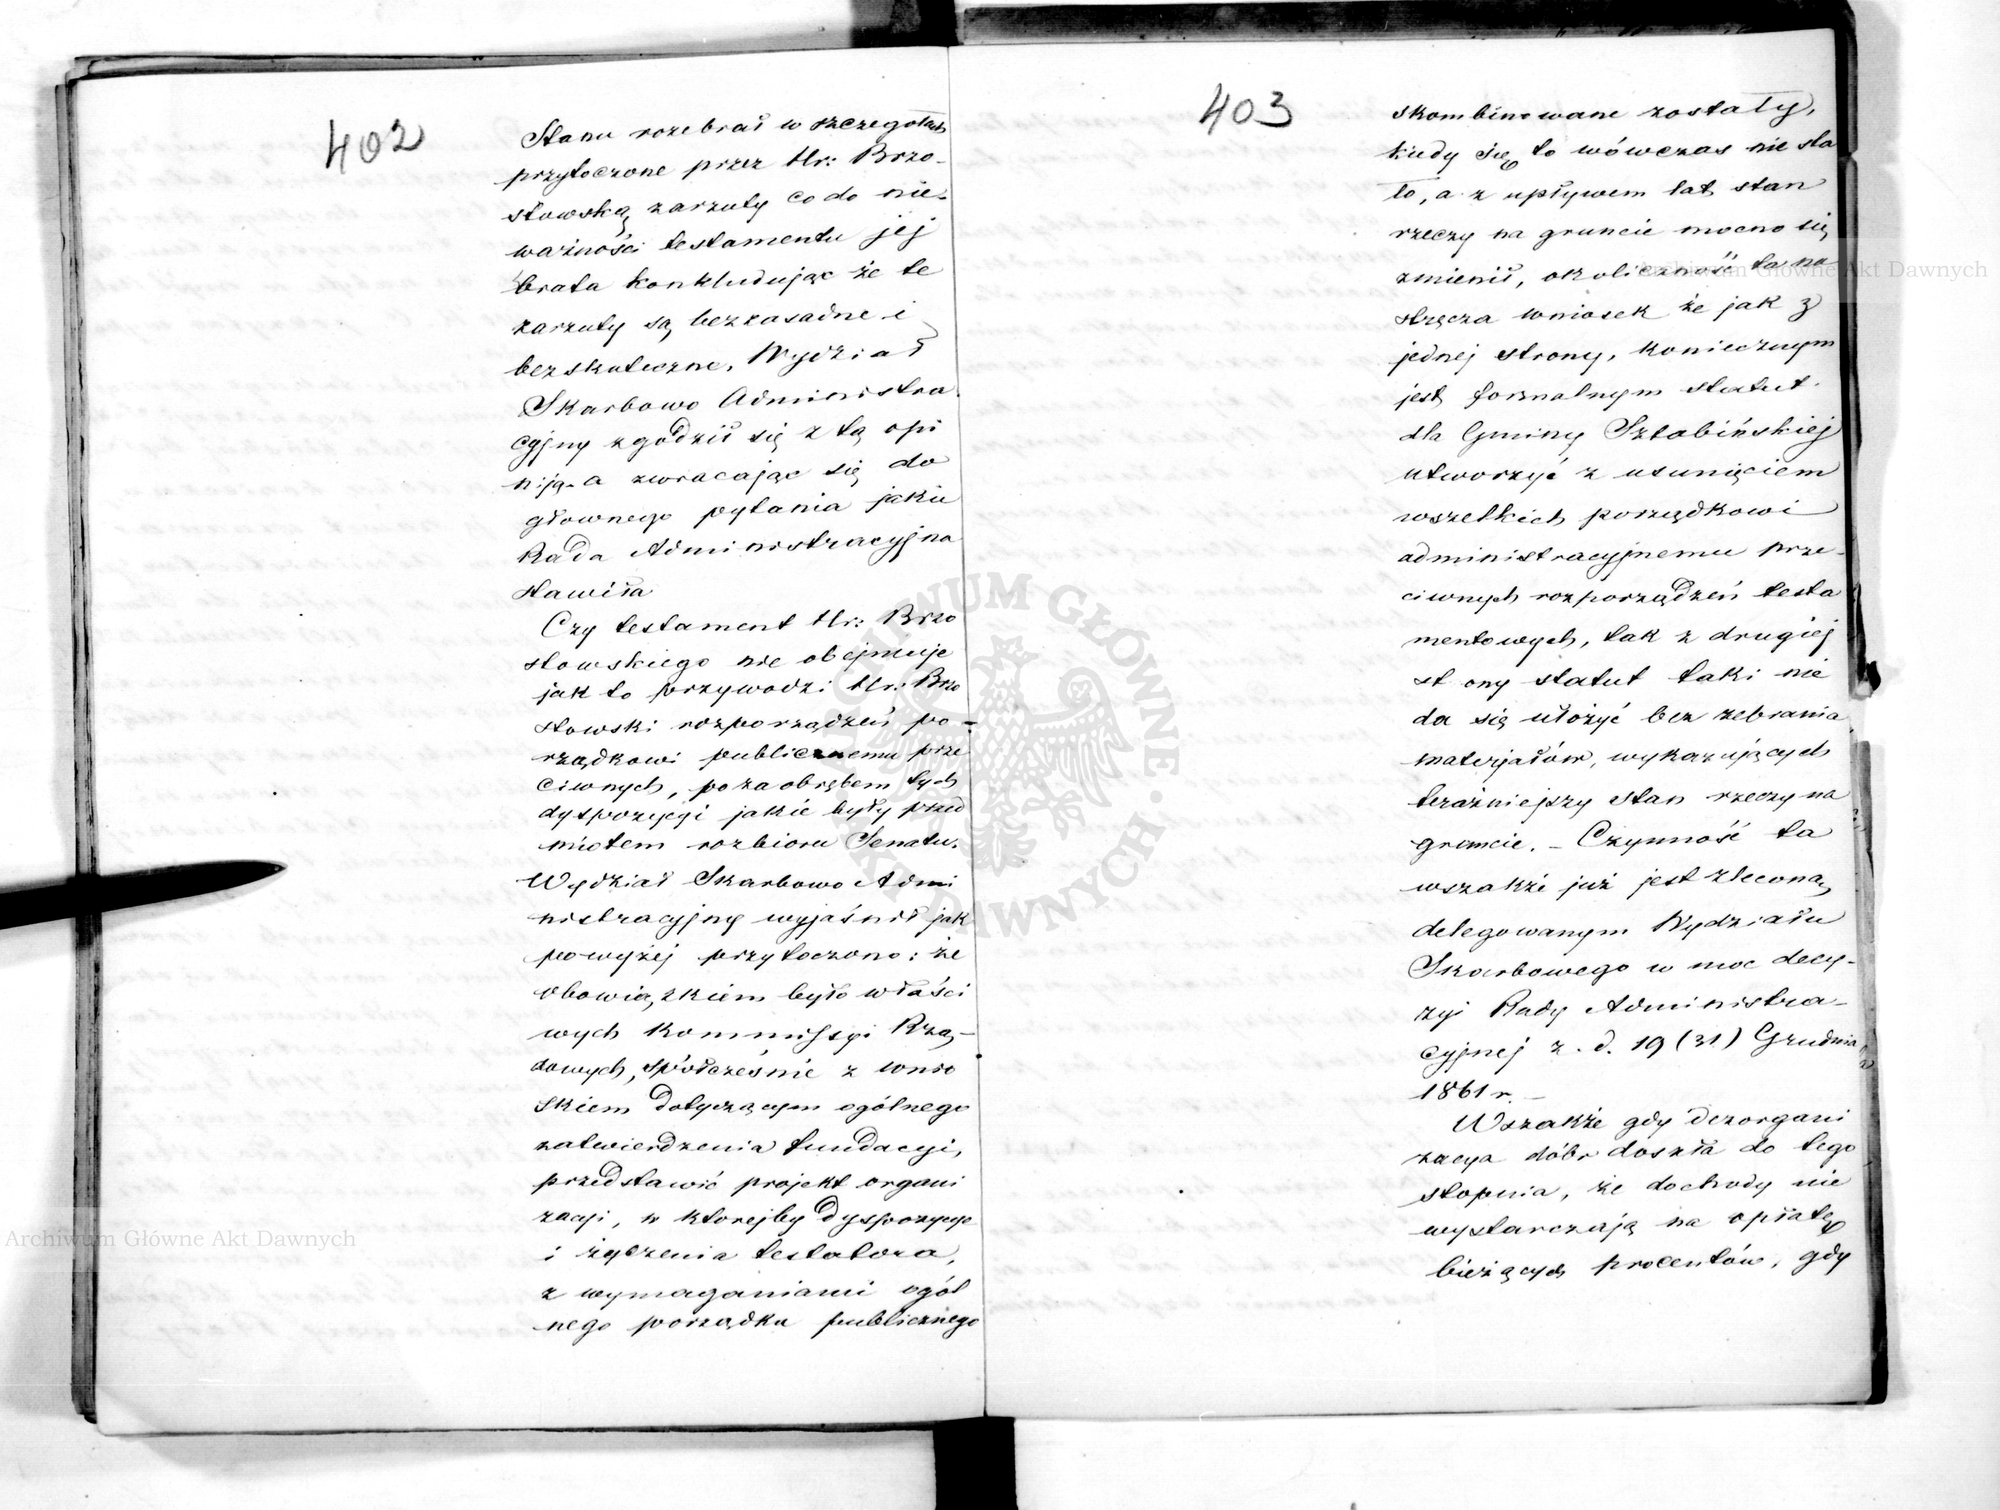 402
Stanu rozebrał w szczegołach
przytoczone przez Hr: Brzo-
stowską zarzuty co do nie-
ważności testamentu jej
brata konkludując że te
zarzuty są bezzasadne i
bezskuteczne, Wydział
Skarbowo Administra-
cyjny zgodził się z tą opi
niją. a zwracając się do
głownego pytania jakie
Rada Administracyjna
stawiła
Czy testament Hr: Brzo
stowskiego nie obejmuje
jak to przywodzi Hr: Brzo
stowski rozporządzeń po-
rządkowi publicznemu prze
ciwnych, poza obrębem tych
dyspozycyi jakie były przed
miotem rozbioru Senatu.
Wydział Skarbowo Admi
nistracyjny wyjaśnił jak
powyżej przytoczono: że
obowiązkiem było właści
wych Kommissyi Rzą-
dowych, spółcześnie z wnio
skiem dotyczącym ogólnego
zatwierdzenia fundacyi,
przedstawić projekt organi
zacyi, w ktorejby dyspozycye
i życzenia testatora,
z wymaganiami ogól
nego porządku publicznego
403
skombinowane zostały,
kiedy się to wówczas nie sta
ło, a z upływem lat stan
rzeczy na gruncie mocno się
zmienił, okoliczność ta na
stręcza wniosek że jak z
jednej strony, koniecznym
jest formalnym statut
dla Gminy Sztabińskiej
utworzyć z usunięciem
wszelkich porządkowi
administracyjnemu prze-
ciwnych rozporządzeń testa
mentowych, tak z drugiej
st ony statut taki nie
da się ułożyć bez zebrania
materjałów, wykazujących
teraźniejszy stan rzeczy na
gruncie. - Czynność ta
wszakże już jest zleconą
delegowanym Wydziału
Skarbowego w moc decy-
zyi Rady Administra-
cyjnej z. d. 19 (31) Grudnia
1861 r. -
Wszakże gdy dezorgani
zacya dóbr doszła do tego
stopnia, że dochody nie
wystarczają na opłatę
bieżących procentów, gdy
Archiwum Główne Akt Dawnych
Archiwum Główne Akt Dawnych
ARCHIWUM GŁÓWNE AKT DAWNYCH